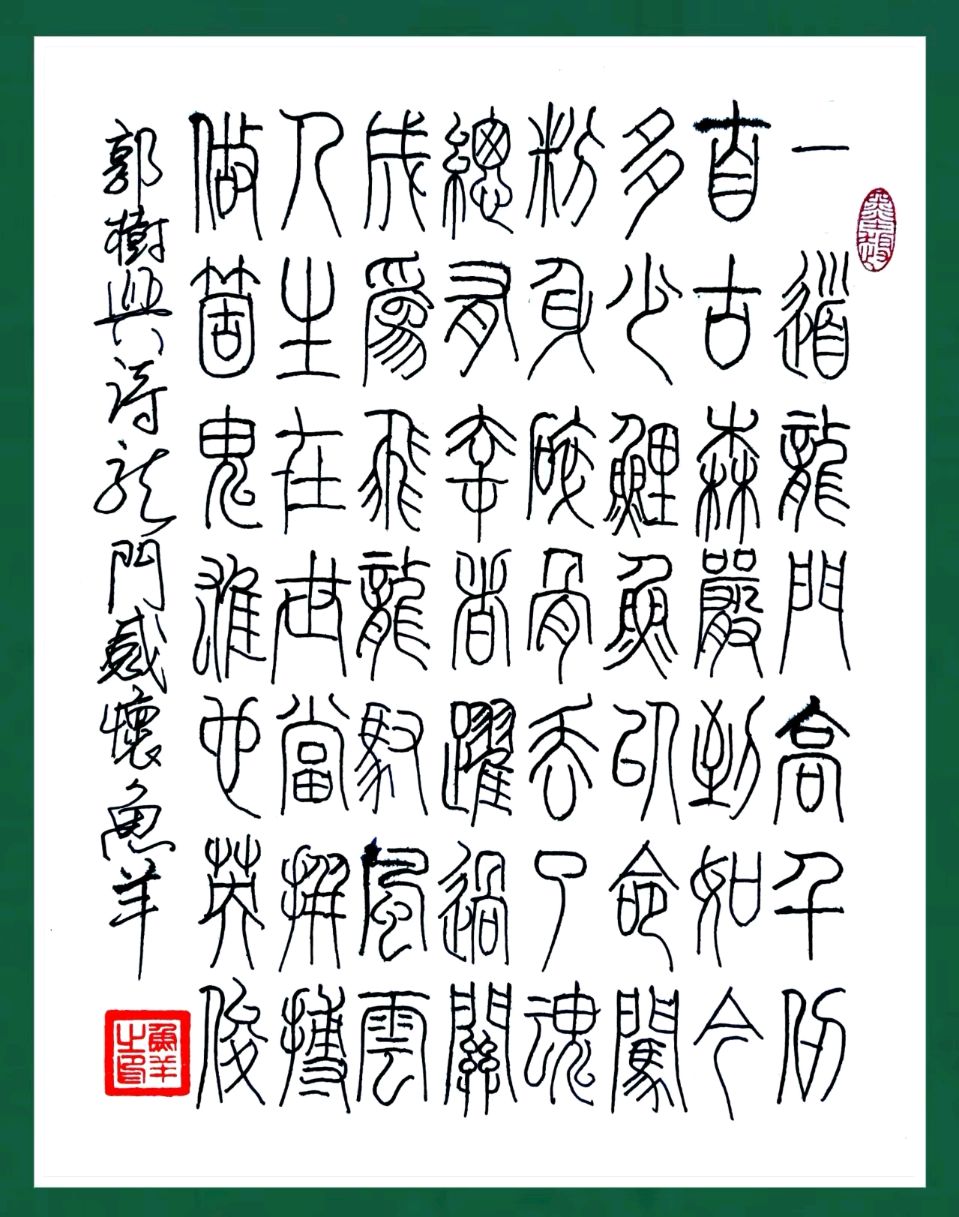 一道龍門高千仞
自古森嚴到如今
多少鯉魚以命闖
粉身碎骨丟了魂
總有幸者躍過關
成爲飛龍馭風雲
人生在世當拼搏
做箇鬼雄也英俊
郭樹興詩龍門感懷魚羊
魚羊之印